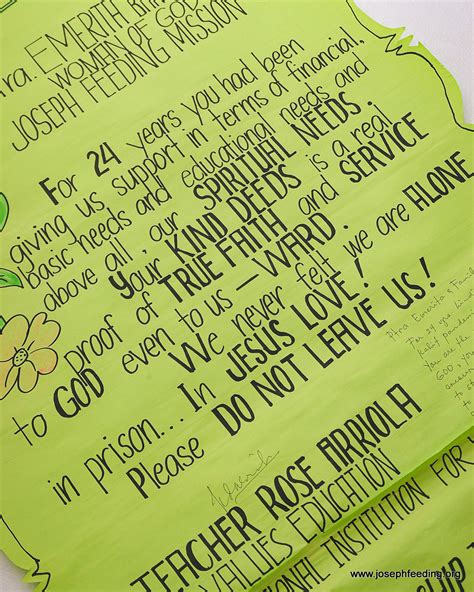 Ptra. EMERITH
WOMEN OF GOD
JOSEPH FEEDING MISSION
For 24 years you had been
giving us support in terms of financial,
basic needs and educational needs and
above all, our SPIRITUAL NEEDS.
Your KIND DEEDS is a real
proof of TRUE FAITH and SERVICE
to GOD even to us - WARD.
We never felt we are ALONE
in prison... In JESUS LOVE!
Please DO NOT LEAVE US!
Ptra Emerita &
For 24 yrs
You are the
GOD,
TEACHER ROSE ARRIOLA
VALUES EDUCATION
INSTITUTION FOR
www.josephfeeding.org